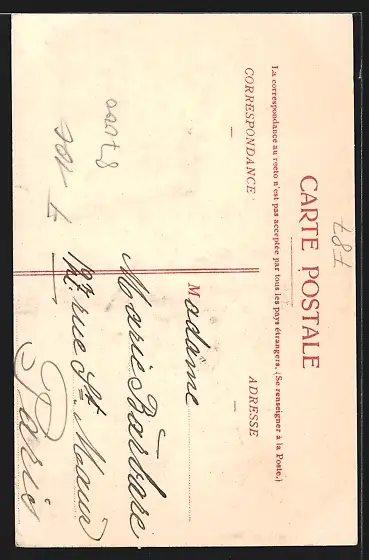 CARTE POSTALE
La correspondance au recto n'est pas acceptée par tous les pays étrangers. (Se renseigner à la Poste.)
CORRESPONDANCE
ADRESSE
Madame
Marie Barbare
127 rue St Maur
Paris